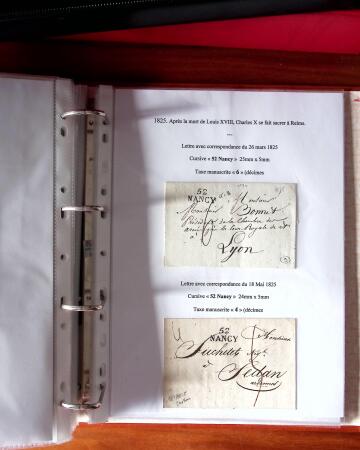 1825. Après la mort de Louis XVIII, Charles X se fait sacrer à Reims.
---
Lettre avec correspondance du 26 mars 1825
Cursive « 52 Nancy » 25mm x 5mm
Taxe manuscrite « 6 » (décimes
52
NANCY
Monsieur
Monsieur Bonnet
Président de la Chambre des
Royale de
à
Lyon
Lettre avec correspondance du 18 Mai 1825
Cursive « 52 Nancy » 24mm x 5mm
Taxe manuscrite « 4 » (décimes
52
NANCY
Monsieur
Suchetet
à Sedan